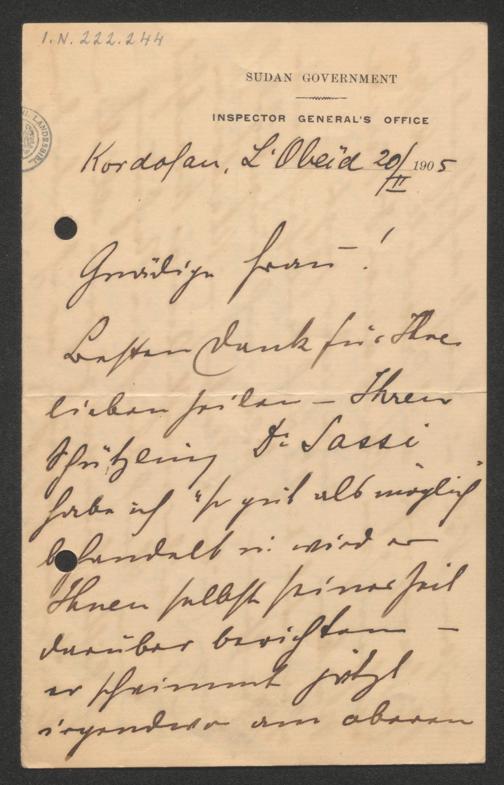 I.N. 222.244
SUDAN GOVERNMENT
INSPECTOR GENERAL'S OFFICE
Kordofan, L'Obeïd 20/II 1905
Gnädige Frau!
Besten Dank für Ihre
lieben Zeilen – Ihren
Schützling Dr Sassi
habe ich "so gut als möglich"
behandelt u. wird er
Ihnen selbst seiner Zeit
darüber berichten –
er schwimmt jetzt
irgendwo am oberen